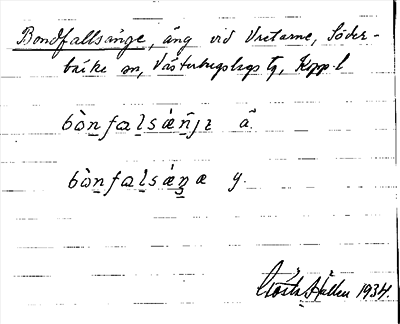 Bondfallsänge, äng vid Vretarne, Söder-
bärke sn, Västerbergslags tg, Kopp. l
bὼn̲fal̲sǽñ̲jɪ ä.
bὼn̲fal̲sǽn̲æ y.
Gösta Hallen 1934.